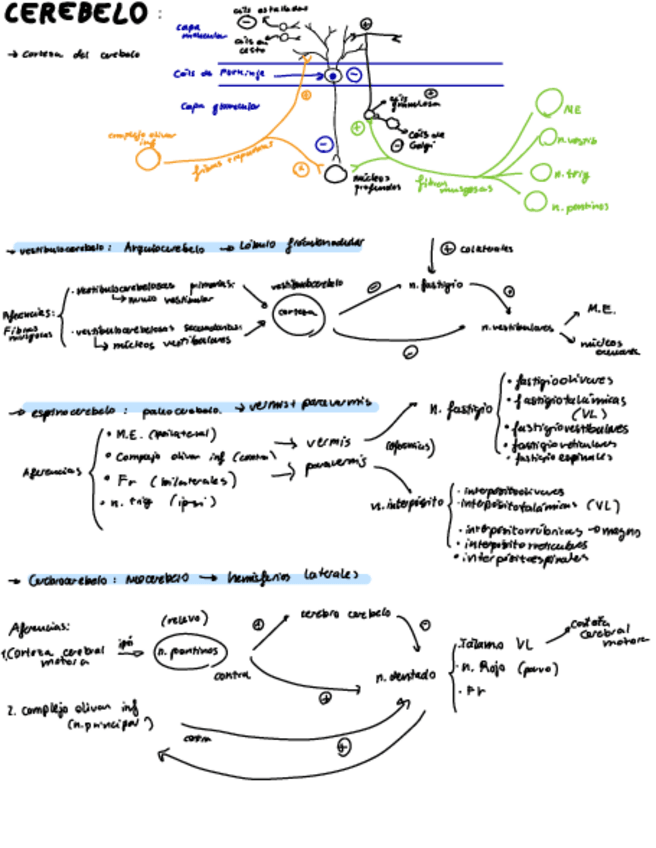 CEREBELO :
→ corteza del cerebelo
capa molecular
céls estrelladas
céls en cesto
céls de Purkinje
capa granular
céls granulosa
céls de Golgi
complejo olivar inf
fibras trepadoras
núcleos profundos
fibras musgosas
ME
n. vestib
n. trig
n. pontinos
→ vestibulocerebelo : Arquicerebelo → Lóbulo floculonodular
+ colaterales
Aferencias: Fibras musgosas
· vestibulocerebelosas primarias:
↳ nervio vestibular
· vestibulocerebelosas secundarias:
↳ núcleos vestibulares
vestibulocerebelo
corteza
n. fastigio
n. vestibulares
M.E.
núcleos
→ espinocerebelo : paleocerebelo. → vermis + paravermis
Aferencias
• M.E. (ipsilateral)
• Complejo olivar inf (contra)
• Fr (bilaterales)
• n. trig (ipsi)
→ vermis
→ paravermis
(eferencias)
n. fastigio
• fastigioolivares
• fastigiotalámicas (VL)
• fastigiovestibulares
• fastigioreticulares
• fastigio espinales
n. interpósito
· interpósitoolivares
· interpósitotalámicas (VL)
· interpósitorrúbricas → magno
• interpósitorreticulares
• interpósitoespinales
→ Cerebrocerebelo : Neocerebelo → hemisferios laterales
Aferencias:
1. Corteza cerebral motora
ipsi
(relevo)
n. pontinos
contra
cerebro cerebelo
n. dentado
· Tálamo VL
· n. Rojo (parvo)
· Fr
corteza cerebral motora
2. complejo olivar inf
(n. principal)
contra